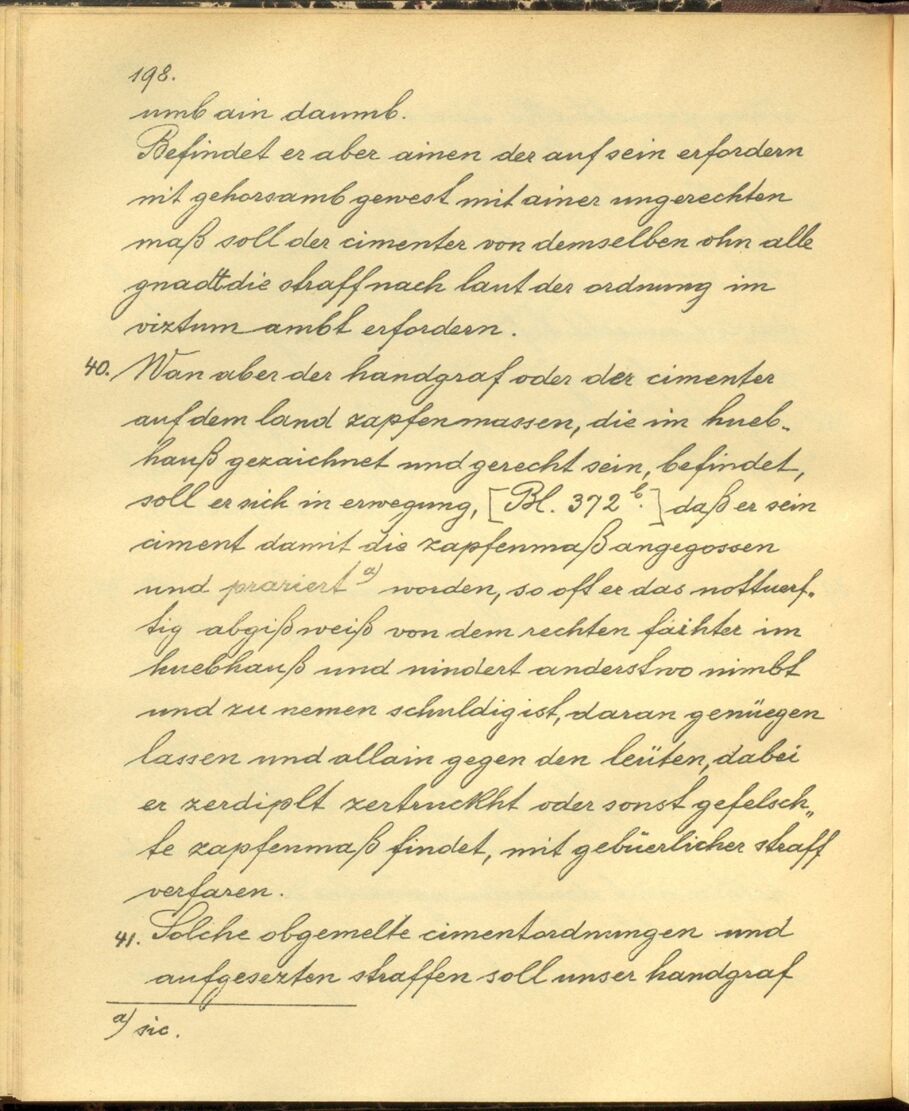 198.
umb ain daumb.
Befindet er aber ainen der auf sein erfordern
nit gehorsamb gewest mit ainer ungerechten
maß soll der cimenter von demselben ohn alle
gnadt die straff nach laut der ordnung im
viztum ambt erfordern.
40. Wan aber der handgraf oder der cimenter
auf dem land zapfenmassen, die im hueb-
hauß gezaichnet und gerecht sein, befindet,
soll er sich in erwegung, [Bl. 372 b.] daß er sein
ciment damit die zapfenmaß angegossen
und praziert a) worden, so oft er das nottuerf-
tig abgißweiß von dem rechten fächter im
huebhauß und nindert anderstwo nimbt
und zu nemen schuldig ist, daran genüegen
lassen und allain gegen den leüten, dabei
er zerdiplt zertruckht oder sonst gefelsch„
te zapfenmaß findet, mit gebüerlicher straff
verfaren.
41. Solche obgemelte cimentordnungen und
aufgesezten straffen soll unser handgraf
a) sic.